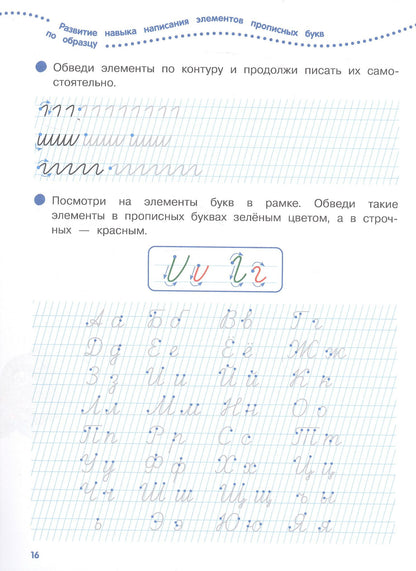 Развитие навыка написания элементов прописных букв
по образцу
Обведи элементы по контуру и продолжи писать их само-
стоятельно.
Посмотри на элементы букв в рамке. Обведи такие
элементы в прописных буквах зелёным цветом, а в строч-
ных — красным.
А а Б б В в Г г
Д д Е е Ё ё Ж ж
З з И и Й й К к
Л л М м Н н О о
П п Р р С с Т т
У у Ф ф Х х Ц ц
Ч ч Ш ш Щ щ ъ ы
ь Э э Ю ю Я я
16